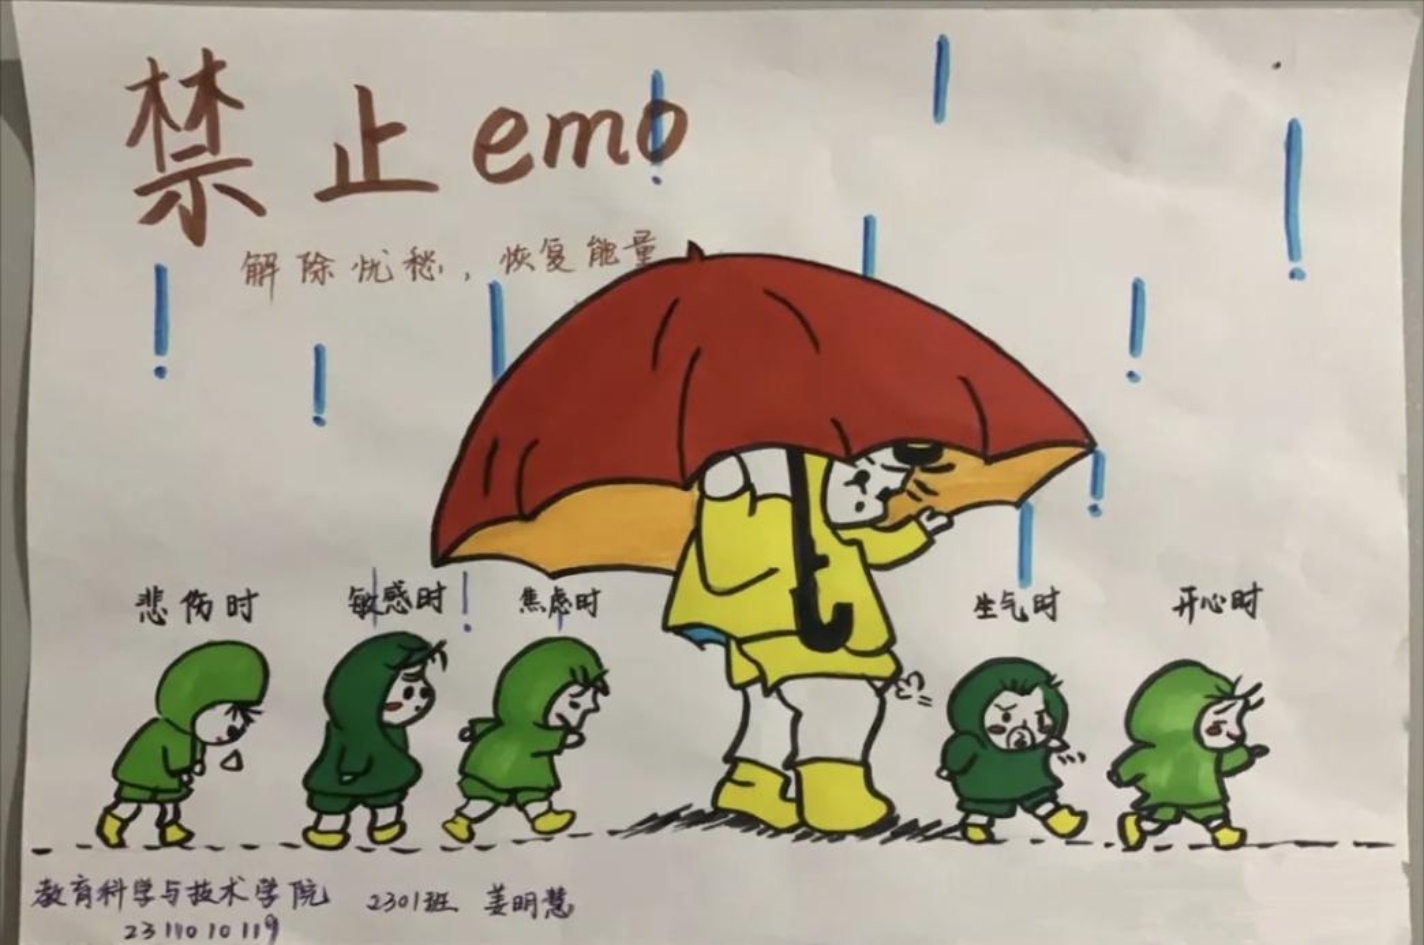 禁止emo
解除忧愁，恢复能量
悲伤时 敏感时 焦虑时 生气时 开心时
教育科学与技术学院 2301班 姜明慧
2314010119